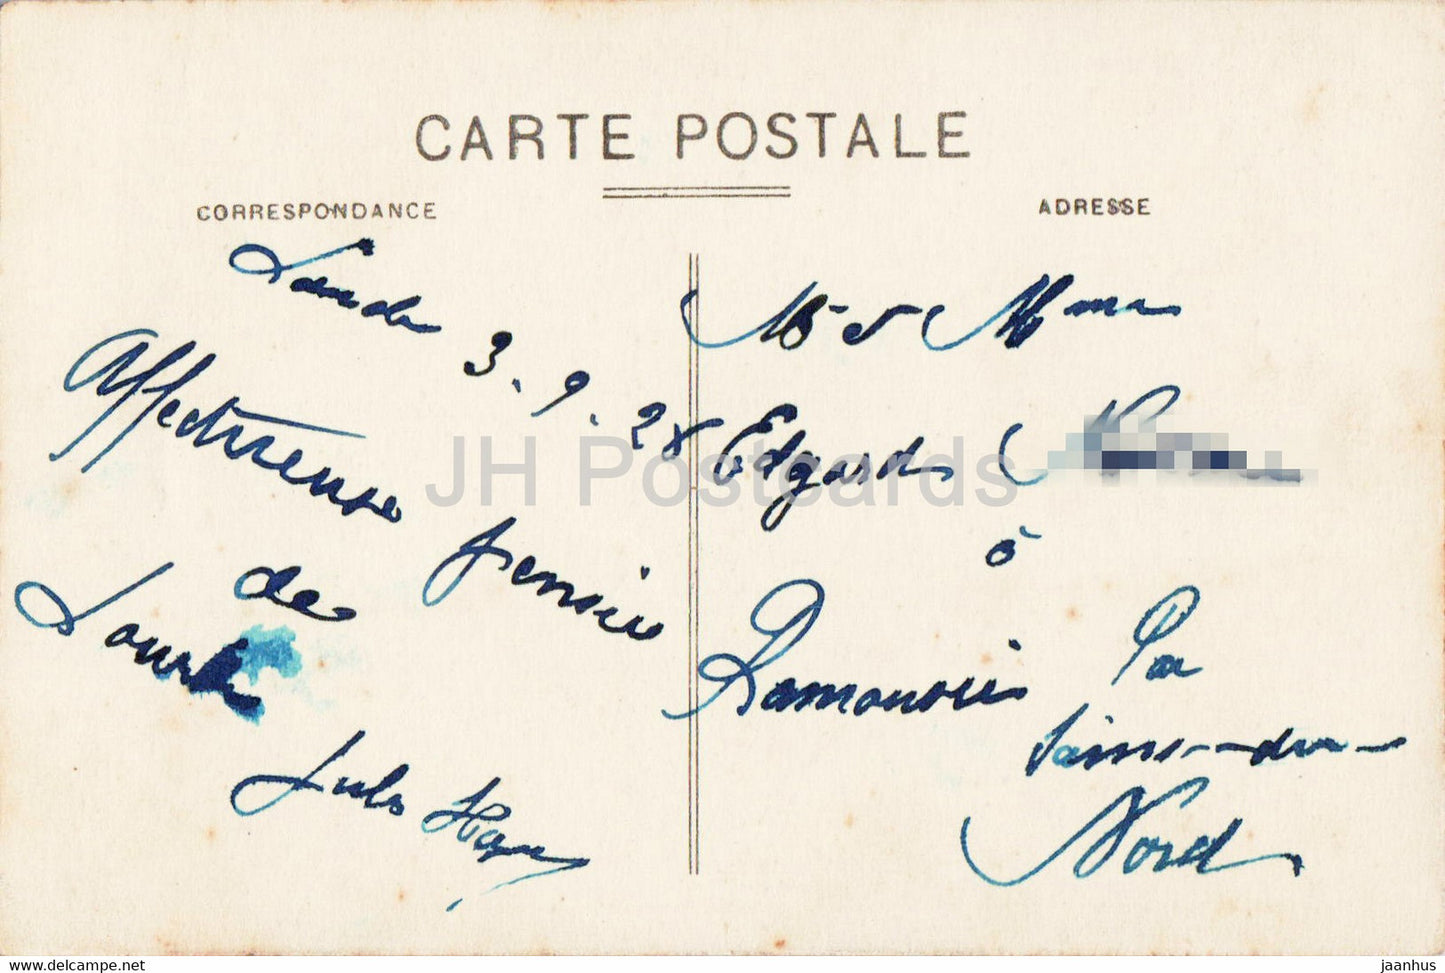 CARTE POSTALE
CORRESPONDANCE
ADRESSE
3.9.28
Affectueuse pensée
de
Lourdes
Jules
Mr et Mme
Edgard
à
Ramousies
Par
Sains-du-
Nord
JH Postcards
www.jhpostcard.com
jaanhus